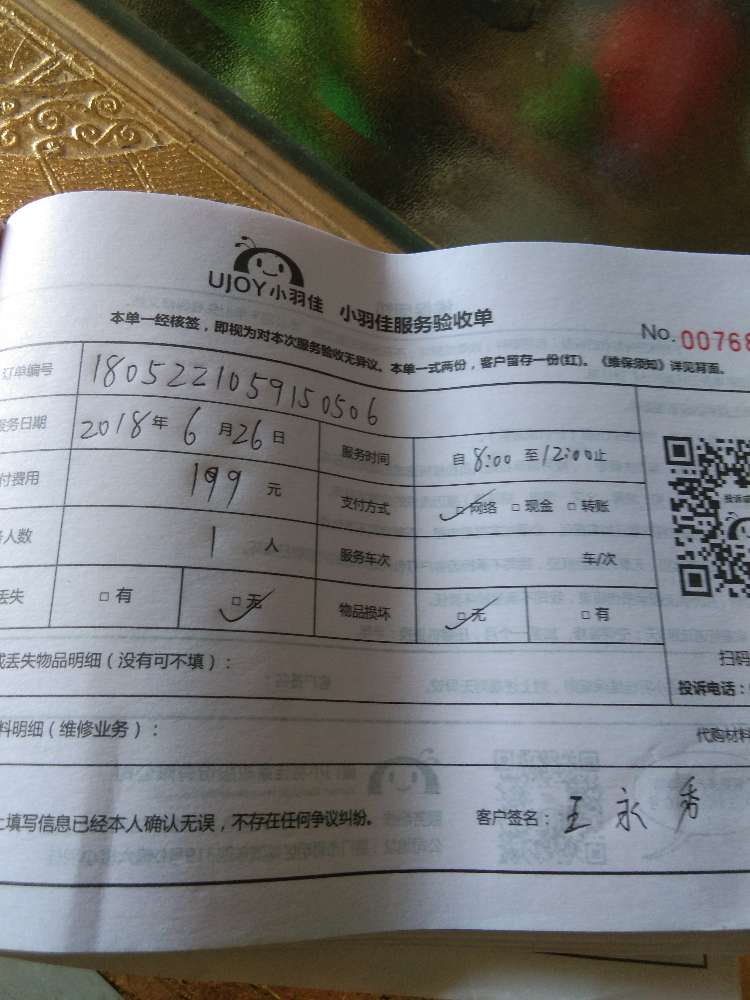 UJOY小羽佳 小羽佳服务验收单
No. 00768
本单一经核签，即视为对本次服务验收无异议。本单一式两份，客户留存一份(红)。《维保须知》详见背面。
订单编号 1805221059150506
服务日期 2018年 6月26日 服务时间 自 8:00 至12:00止
付费用 199 元 支付方式 □网络 □现金 □转账
人数 1 人 服务车次 车/次
丢失 □有 □无 物品损坏 □无 □有
扫码
或丢失物品明细（没有可不填）：
投诉电话：
料明细（维修业务）： 代购材料
上填写信息已经本人确认无误，不存在任何争议纠纷。 客户签名：王永秀